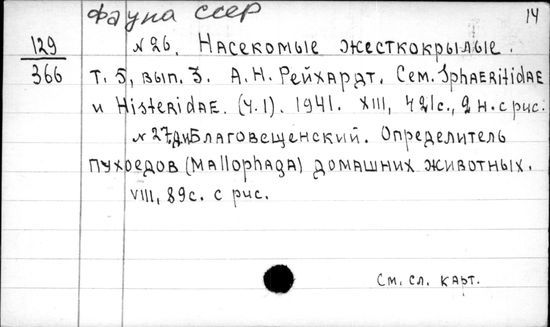 Фауна СССР
14
129
366
№ 26. Насекомые жесткокрылые.
т. 5, вып. 3. А.Н. Рейхардт. Сем. Sphaeritidae
и Histeridae. (ч.1). 1941. XIII, 421с., 2 н. с рис.
№ 27. Д.И. Благовещенский. Определитель
пухоедов (Mallophaga) домашних животных.
VIII, 89с. с рис.
См. сл. карт.